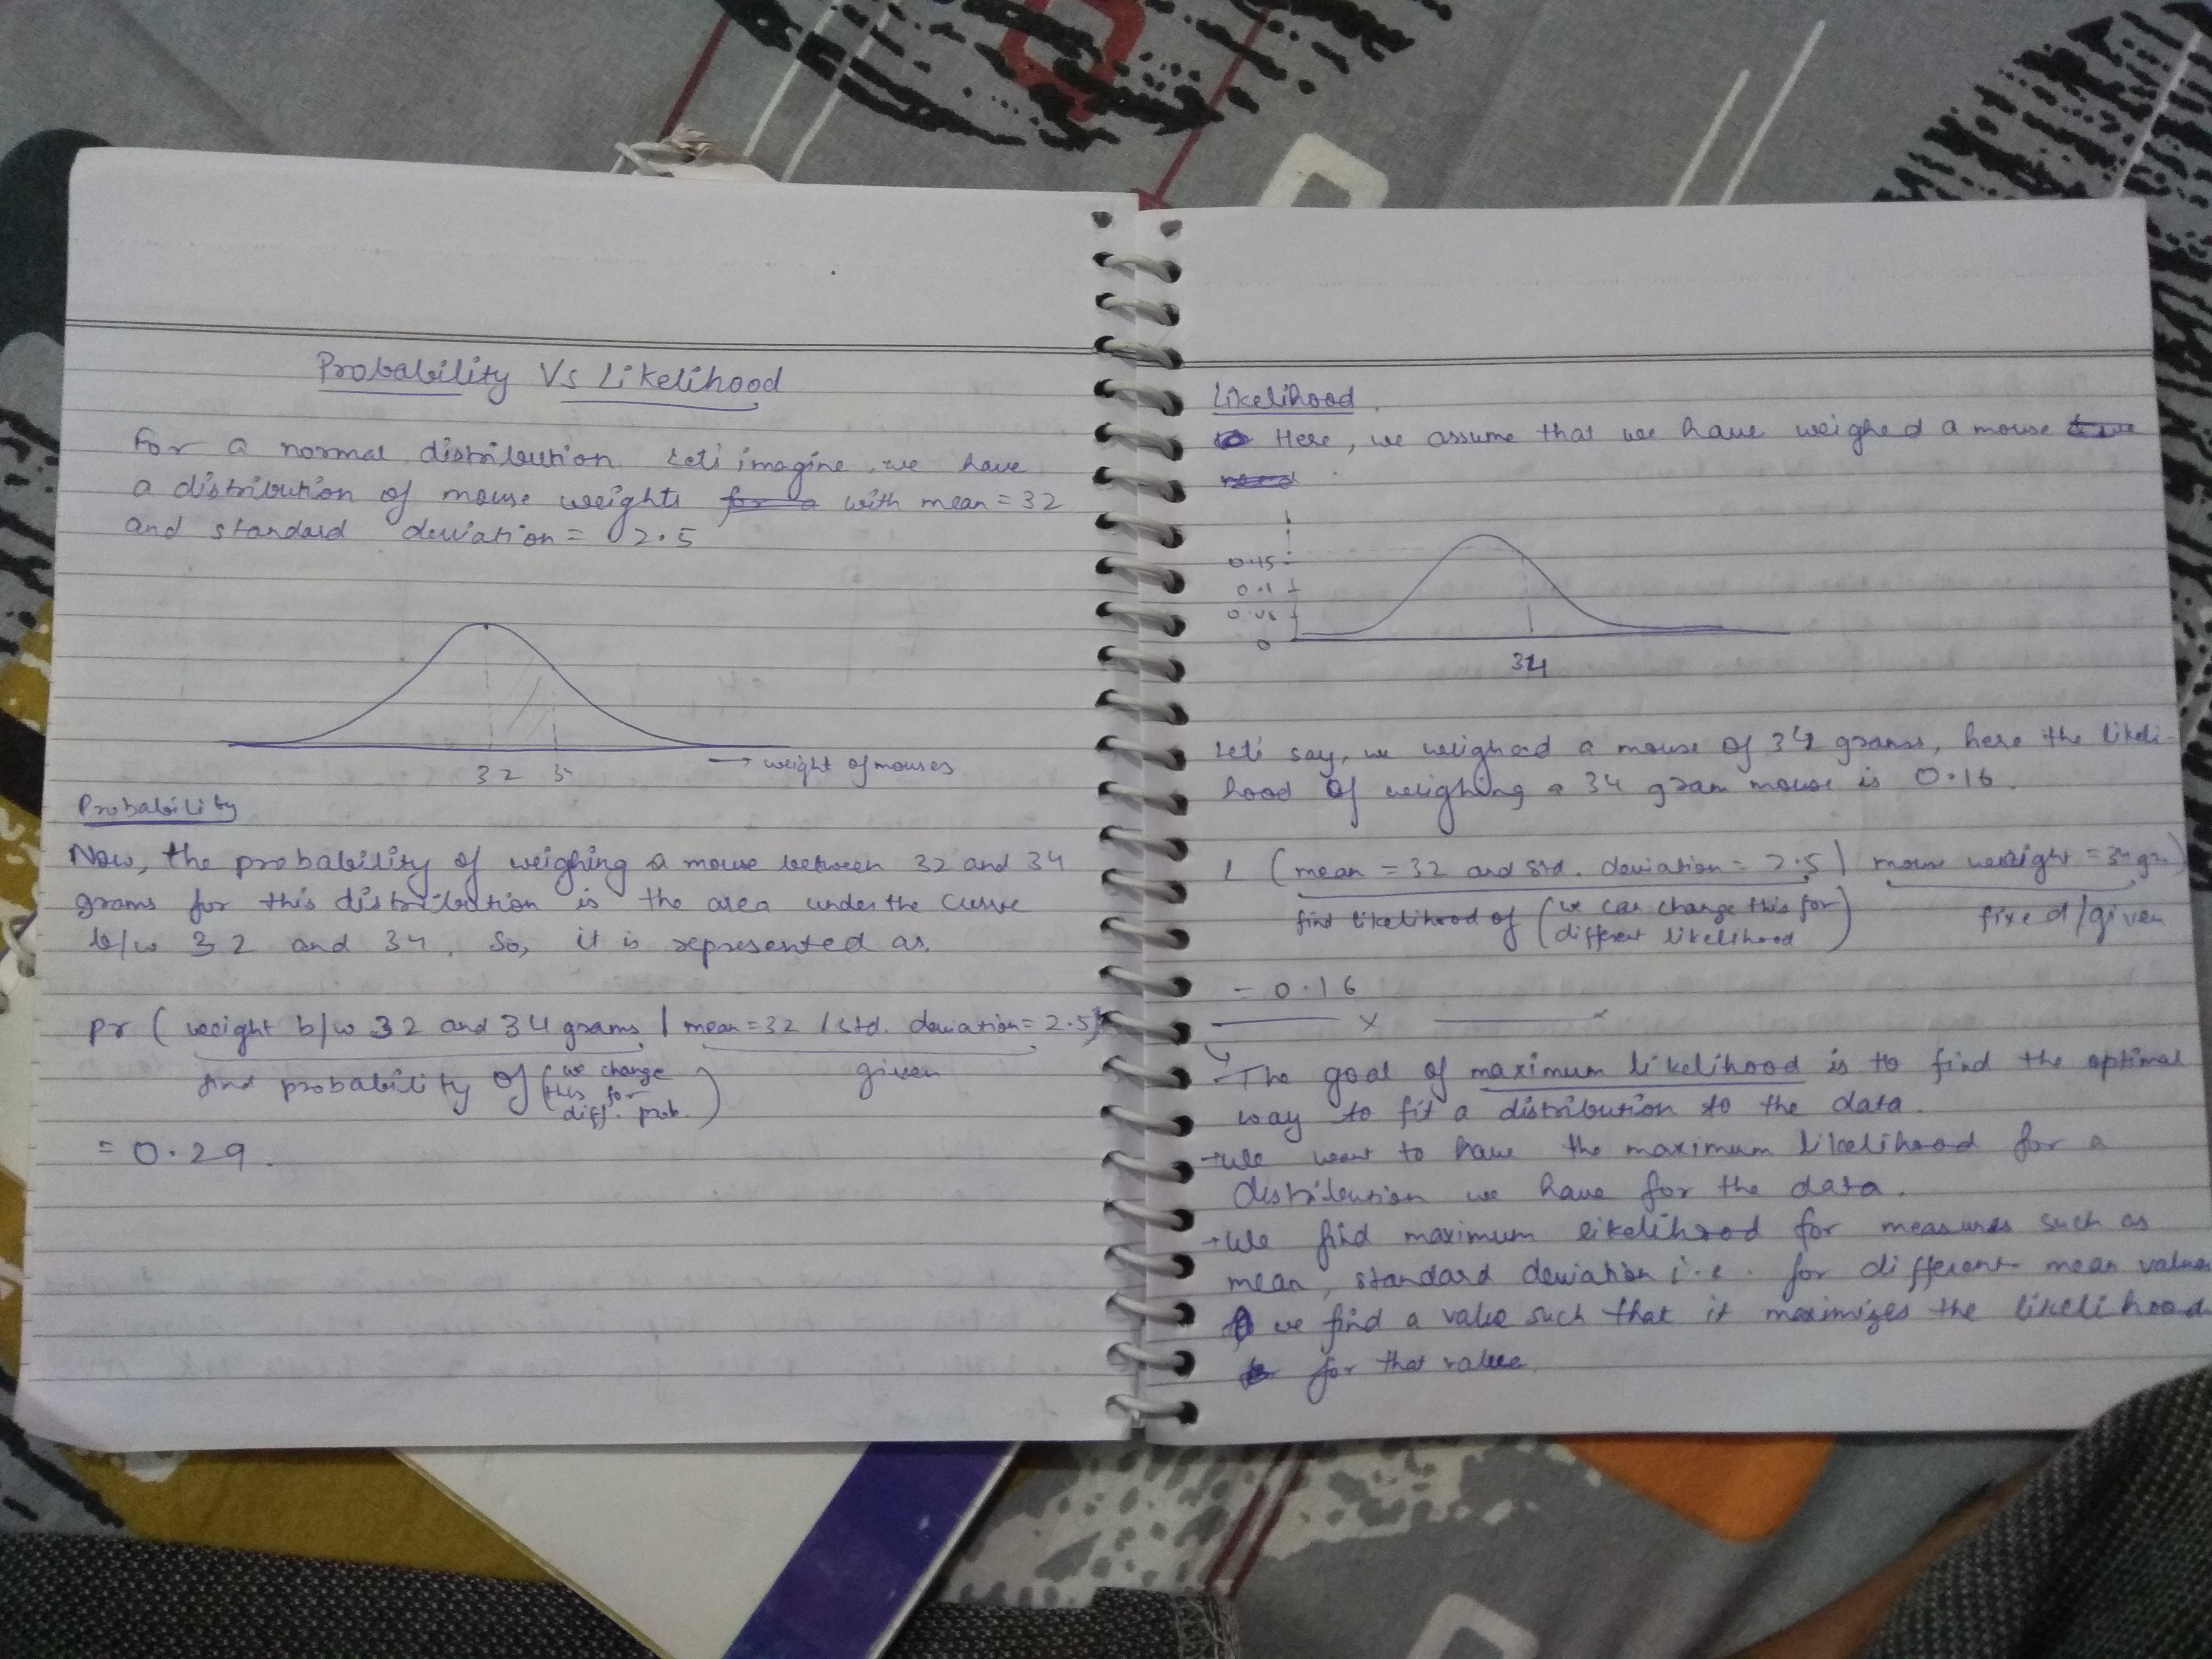 Probability Vs Likelihood
For a normal distribution let's imagine, we have
a distribution of mouse weights with mean = 32
and standard deviation = 2.5
32 34
→ weight of mouses
Probability
Now, the probability of weighing a mouse between 32 and 34
grams for this distribution is the area under the curve
b/w 32 and 34. So, it is represented as.
pr ( weight b/w 32 and 34 grams | mean = 32 / std. deviation = 2.5)
find probability of (we change this for diff. prob.) given
= 0.29.
Likelihood.
Here, we assume that we have weighed a mouse
0.15
0.1
0.05
0
34
Let's say, we weighed a mouse of 34 grams, here the likeli-
hood of weighing a 34 gram mouse is 0.16.
L (mean = 32 and std. deviation = 2.5 | mouse weight = 34 gm)
find likelihood of (we can change this for different likelihood) fixed/given
= 0.16
→ The goal of maximum likelihood is to find the optimal
way to fit a distribution to the data.
→ We want to have the maximum likelihood for a
distribution we have for the data.
→ We find maximum likelihood for measures such as
mean, standard deviation i.e. for different mean values
we find a value such that it maximizes the likelihood
for that value.